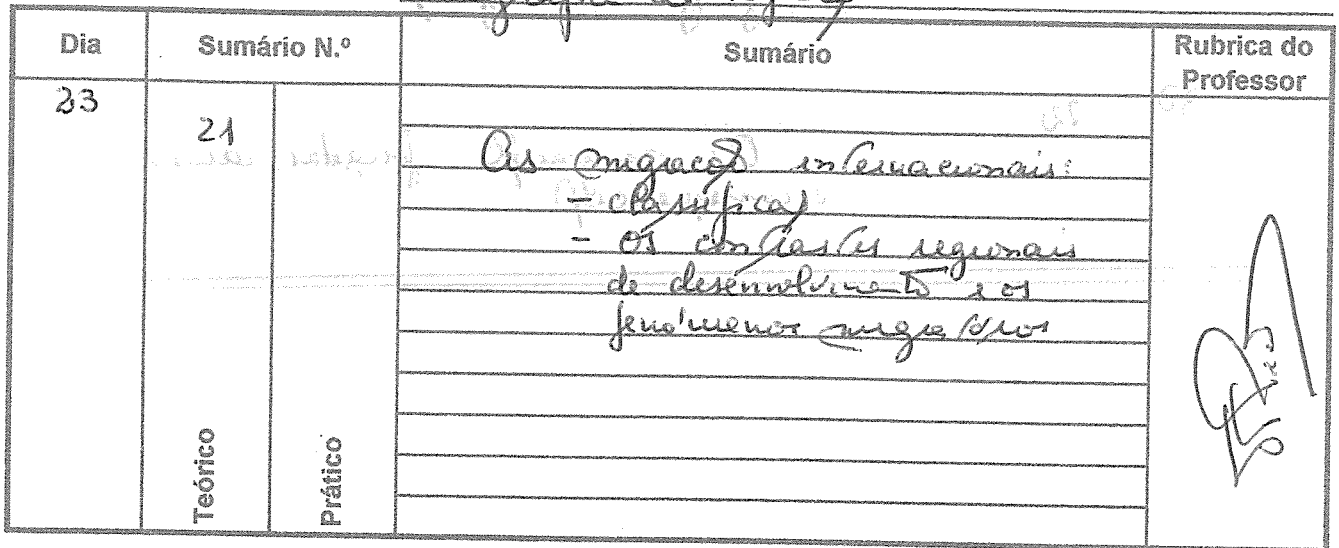 Dia
Sumário N.º
Sumário
Rubrica do
Professor
23
21
As migrações internacionais:
- classificação
- os contrastes regionais
de desenvolvimento e os
fenómenos migratórios
Teórico
Prático